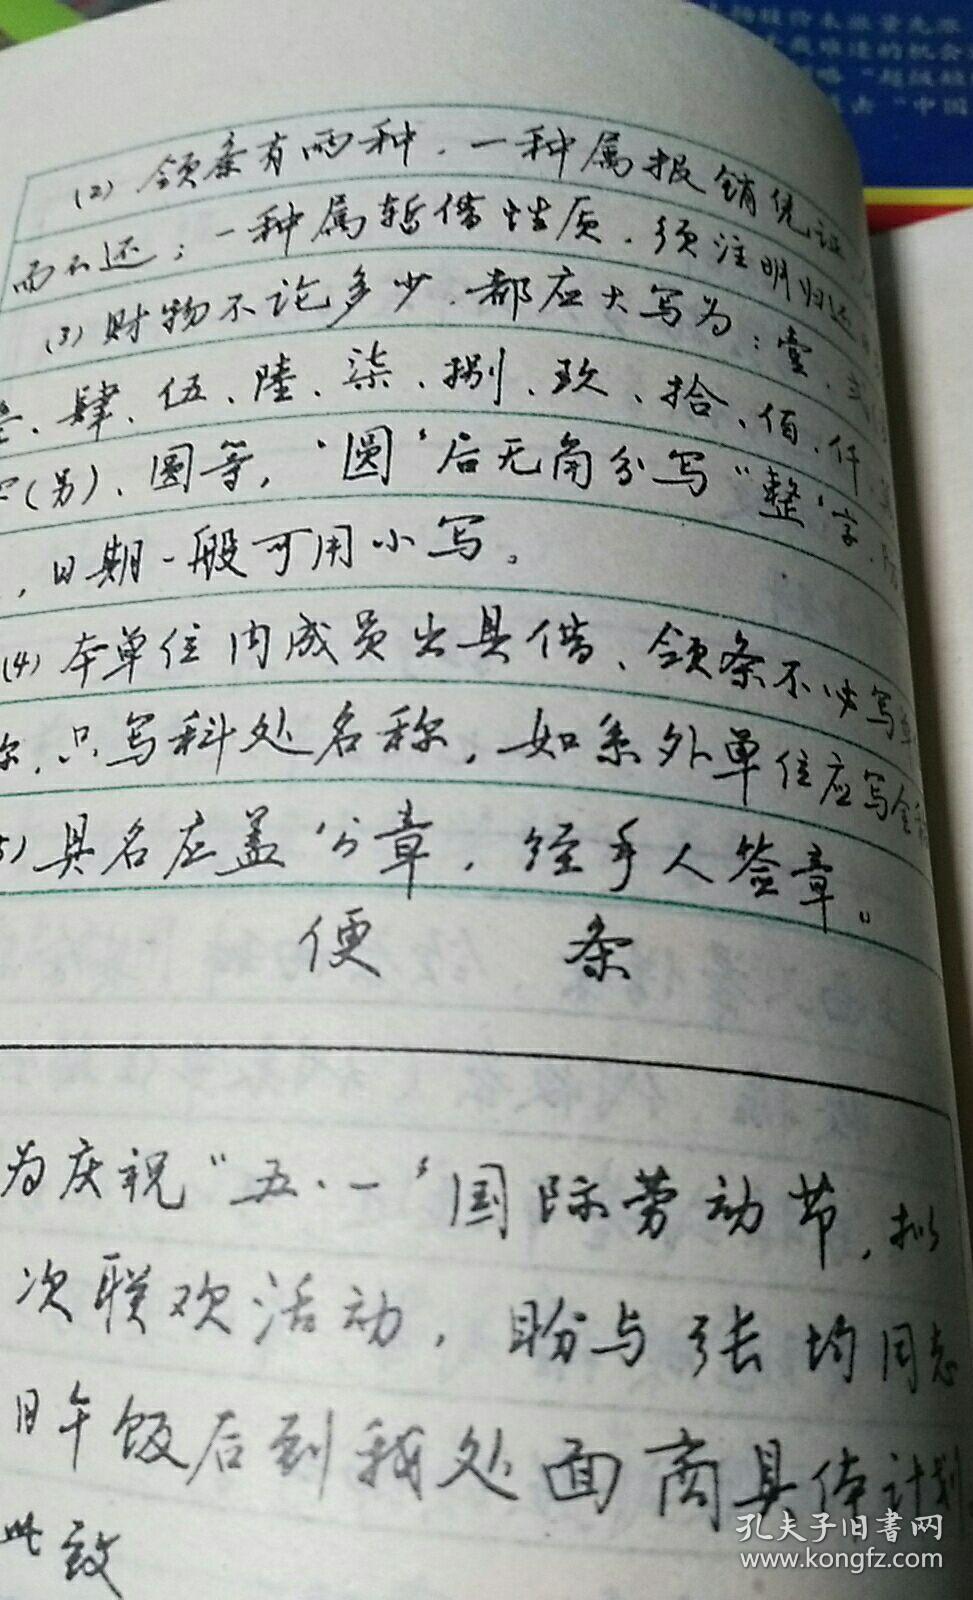 (2) 领条有两种.一种属报销凭证
而不还；一种属暂借性质.须注明归还
(3) 财物不论多少.都应大写为：壹、弍
、肆、伍、陆、柒、捌、玖、拾、佰、仟
(另)、圆等，“圆”后无角分写“整”字.
，日期一般可用小写。
(4) 本单位内成员出具借、领条不必写单
称，只写科处名称，如系外单位应写全称
5) 具名应盖公章，经手人签章。
便 条
为庆祝“五·一”国际劳动节，拟
次联欢活动，盼与张均同志
日午饭后到我处面商具体计划
此致
孔夫子旧书网
www.kongfz.com